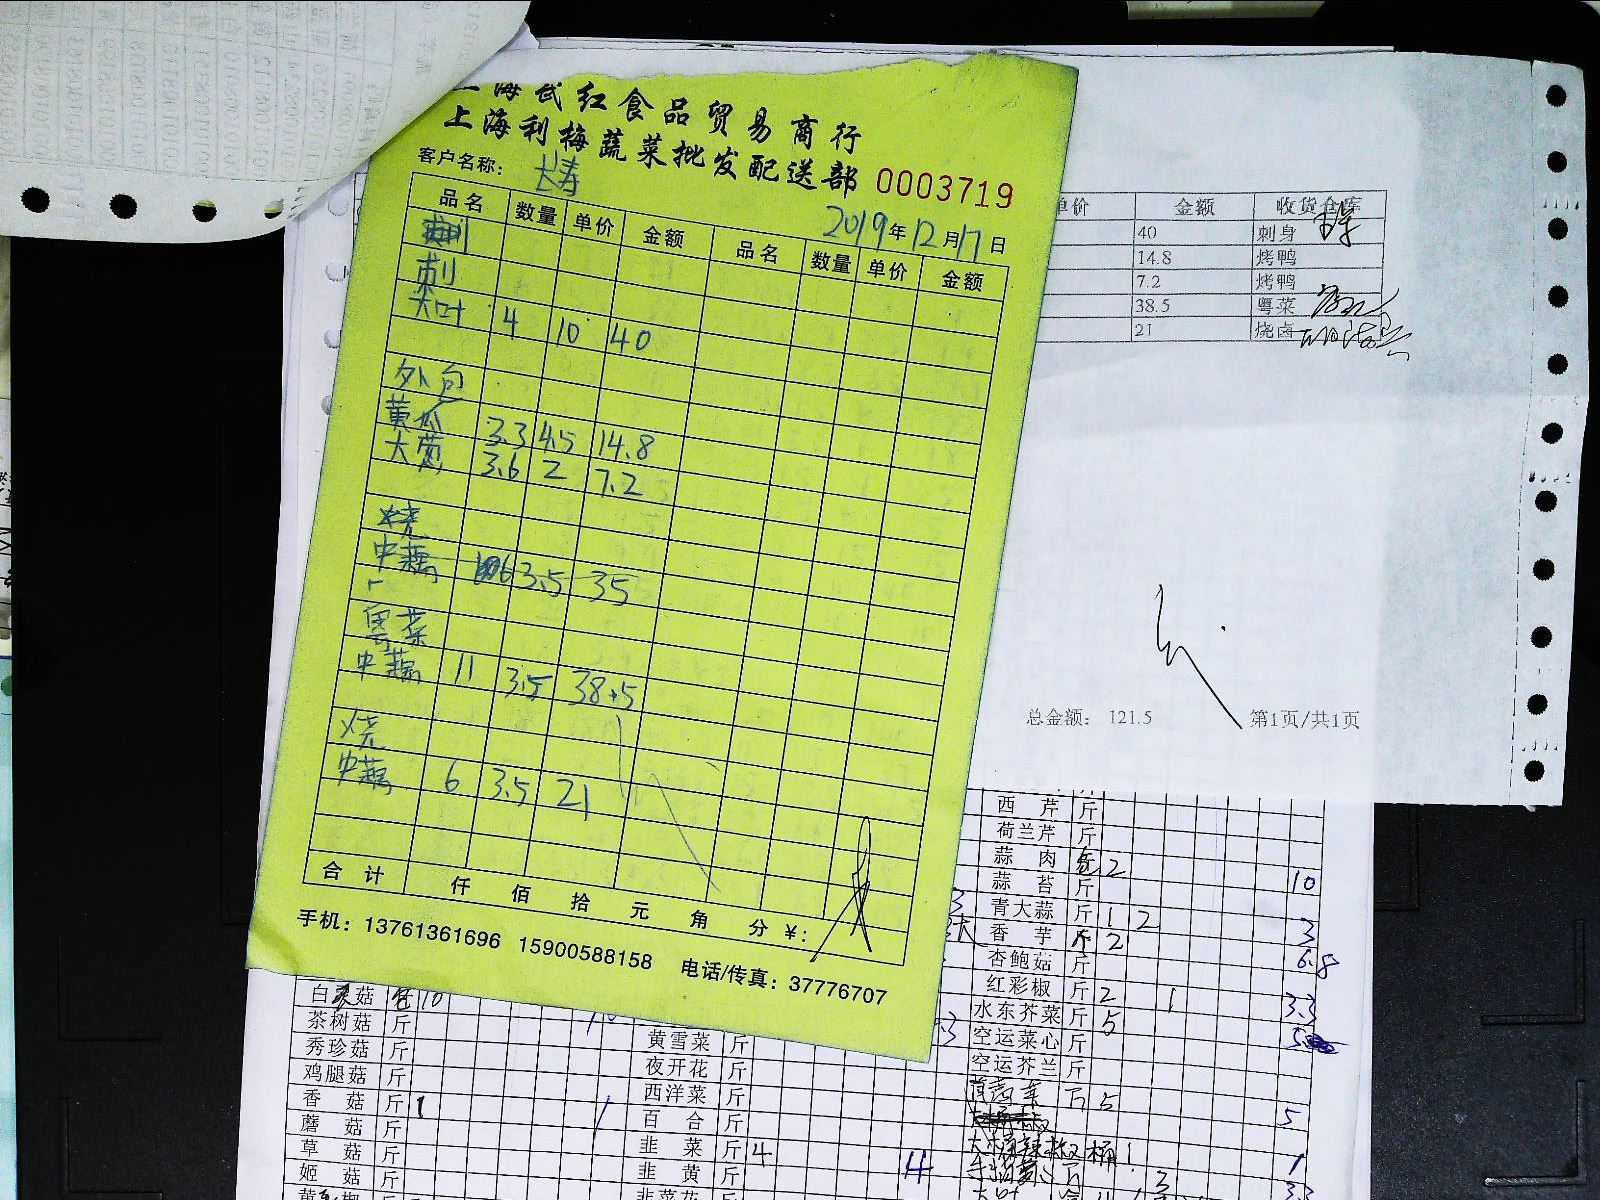 上海武红食品贸易商行
上海利梅蔬菜批发配送部 0003719
客户名称: 长寿
2019年12月17日
品名 数量 单价 金额 品名 数量 单价 金额
刺
大叶 4 10 40
外包
黄瓜 3.3 4.5 14.8
大葱 3.6 2 7.2
烧
中藕 3.5 35
粤菜
中藕 11 3.5 38.5
烧
中藕 6 3.5 21
合计 仟 佰 拾 元 角 分 ¥:
手机: 13761361696 15900588158 电话/传真: 37776707
单价 金额 收货仓库
40 刺身
14.8 烤鸭
7.2 烤鸭
38.5 粤菜
21 烧卤
总金额: 121.5 第1页/共1页
西芹 斤
荷兰芹 斤
蒜肉 2
蒜苔 斤 10
青大蒜 斤 1 2
香芋 2 3
杏鲍菇 斤 6.8
红彩椒 斤 2 1
水东芥菜 斤 5 3.3
空运菜心 斤
空运芥兰 斤
5 5
大 辣椒 桶 1 1
白 菇 10
茶树菇 斤
秀珍菇 斤
鸡腿菇 斤
香菇 斤 1 1
蘑菇 斤
草菇 斤
姬菇 斤
黄雪菜 斤
夜开花 斤
西洋菜 斤
百合 斤
韭菜 斤 4
韭黄 斤 4
韭菜花